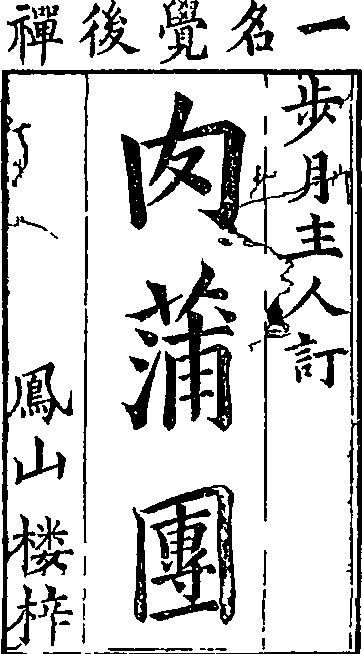 一名覺後禪
步月主人訂
肉蒲團
鳳山楼梓